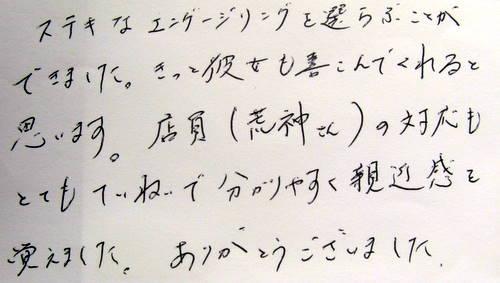 ステキなエンゲージリングを選らぶことが
できました。きっと彼女も喜こんでくれると
思います。店員(荒神さん)の対応も
とてもていねいで分かりやすく親近感を
覚えました。ありがとうございました。